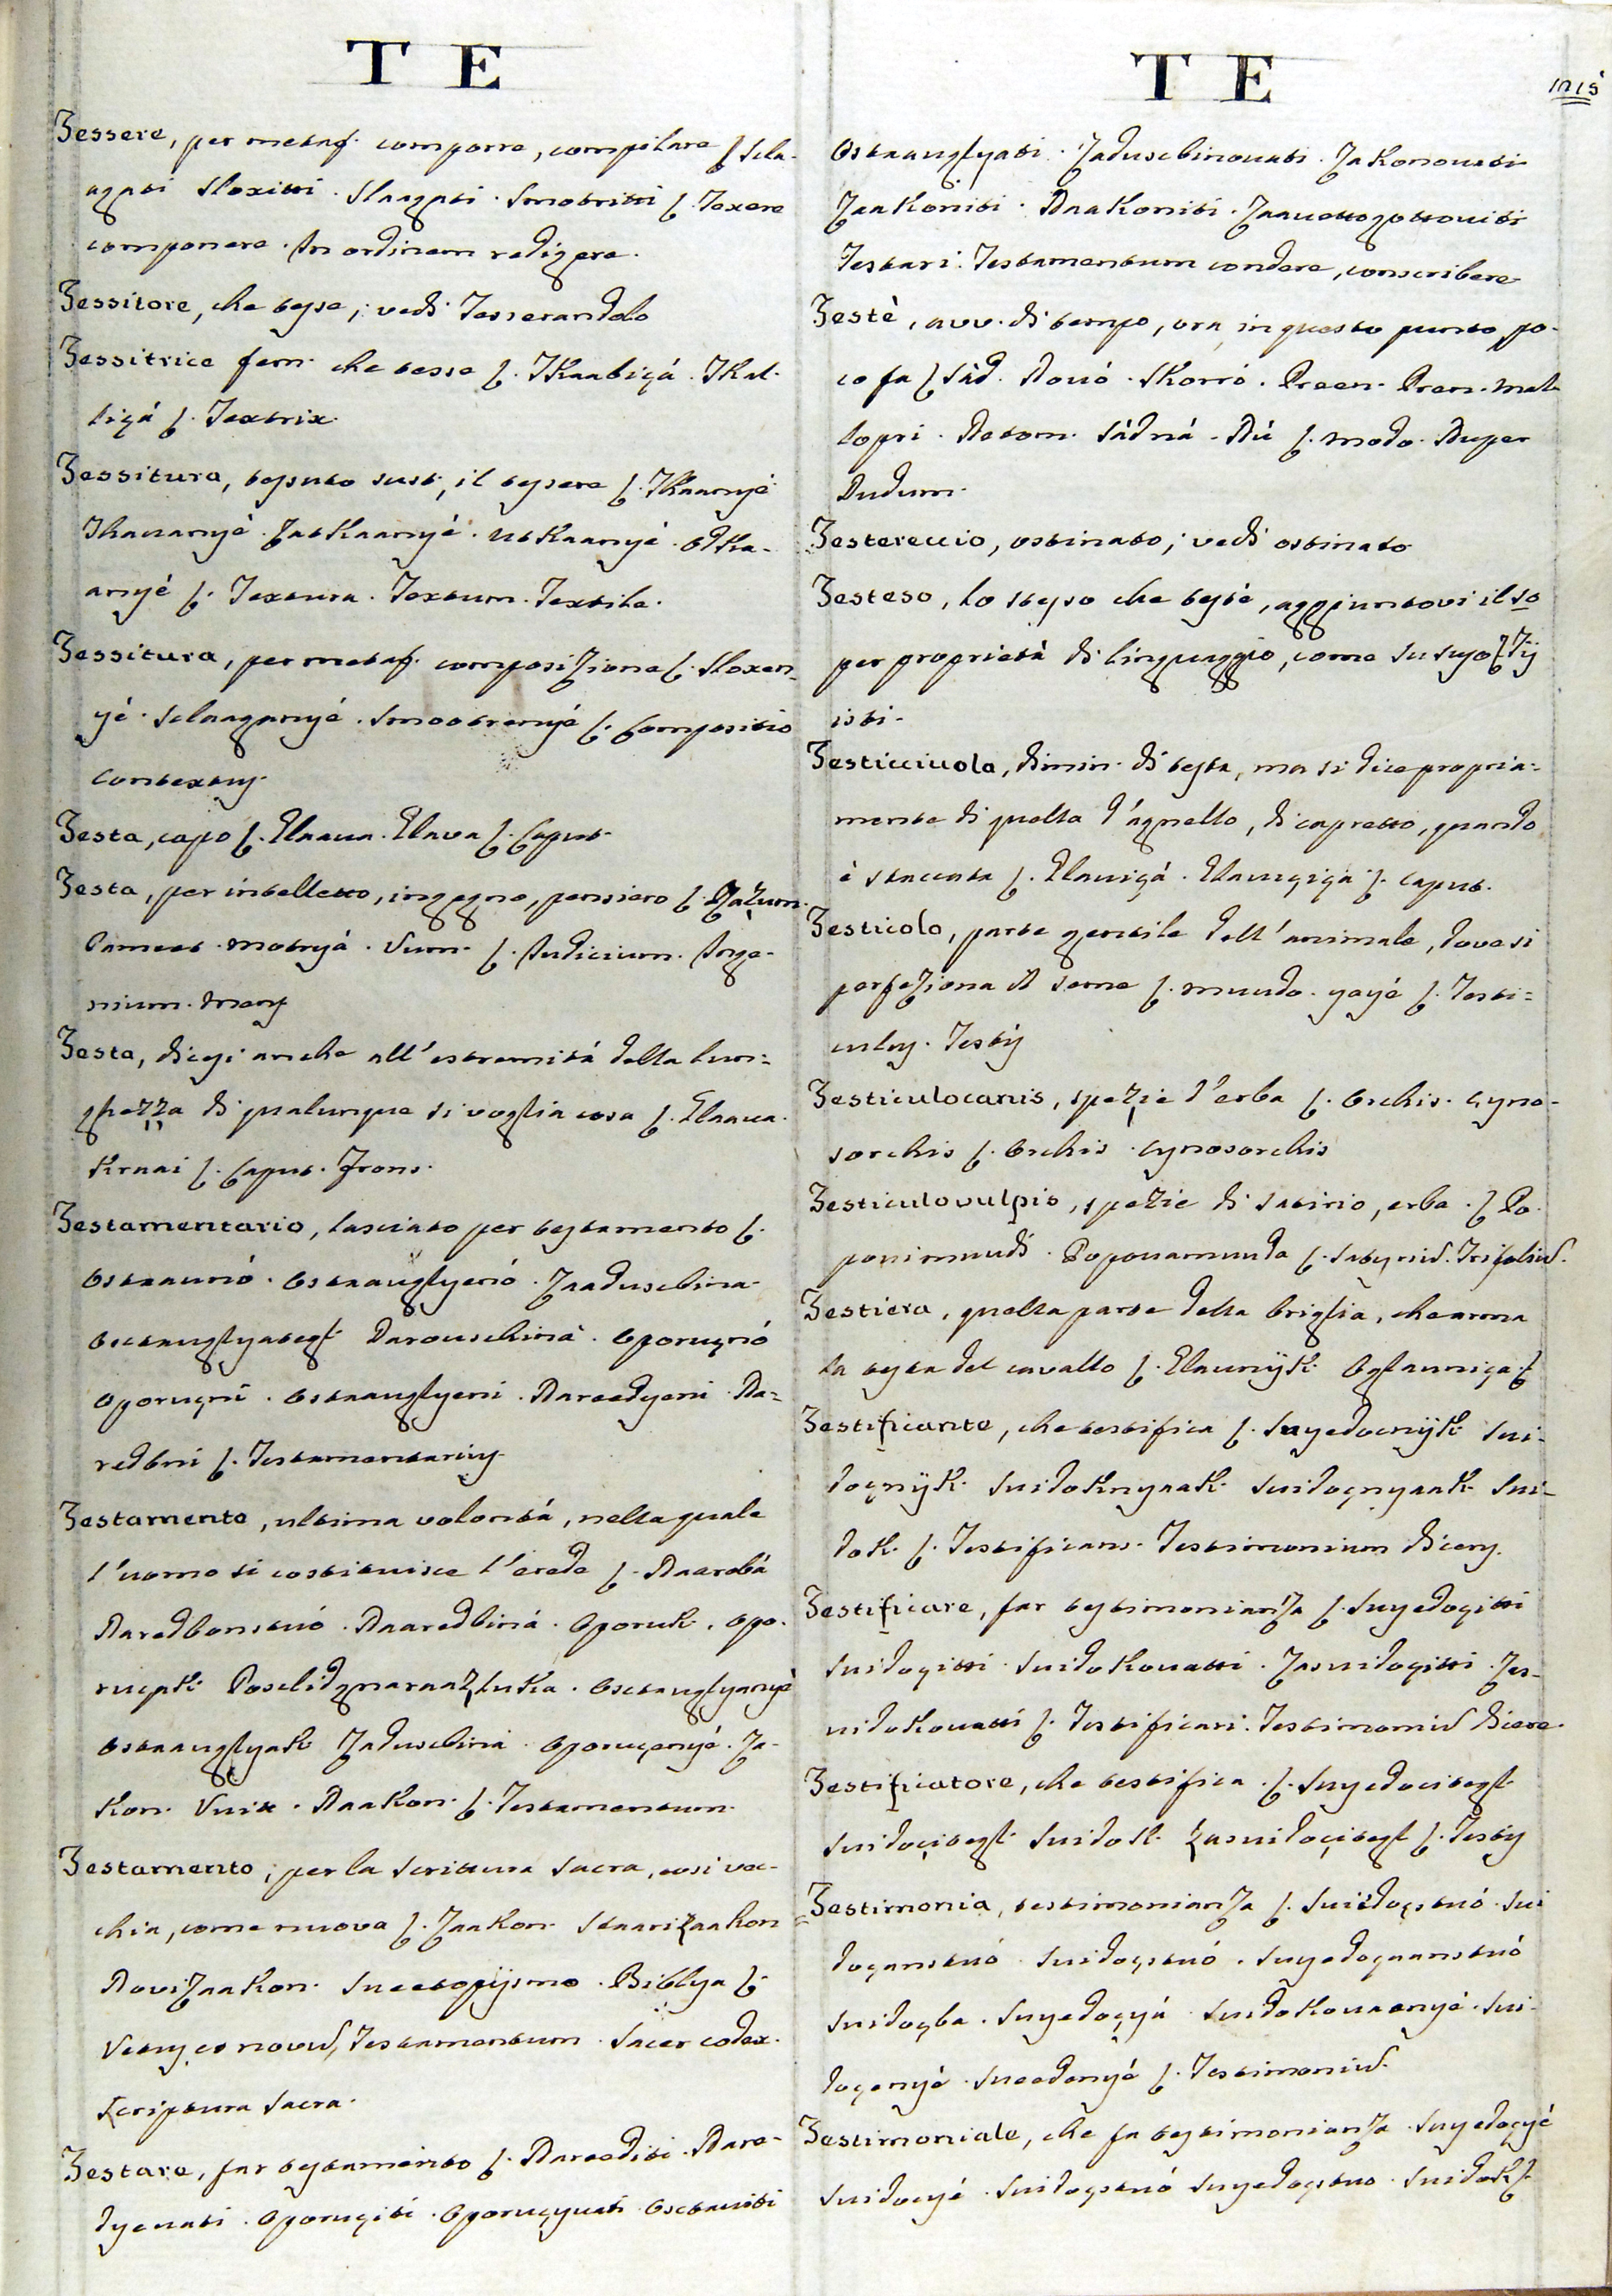 T E
Tessere, per metaf. comporre, compilare ſ Scla-
agati Sloxitti. Slaagati. Smotritti ſ. Texere
componere. In ordinem redigere.
Tessitore, che tesse; vedi Tesserandolo
Tessitrice fem. che tesse ſ. Tkaaliçá. Tkal-
liçá ſ. Textrix.
Tessitura, tessuto sust, il tessere ſ. Tkaanyé
Tkauanyé. Zatkaanyé. utkaanyé. otka-
anyé ſ. Textura. Textum. Textile.
Tessitura, per metaf. composizione ſ. Sloxen-
yé. Sclaaganyé. Smootrenyé ſ. Compositio
Contextus.
Testa, capo ſ. Glaaua. Glava ſ. Caput.
Testa, per intelletto, ingegno, pensiero ſ. Razum.
Pameet. motryá. Vum. ſ. Iudicium. Inge-
nium. Mens
Testa, dicesi anche all'estremitá della lun=
ghezza di qualunque si voglia cosa ſ. Glaaua.
Kraai ſ. Caput. Frons.
Testamentario, lasciato per testamento ſ.
Ostaaunó. Ostaauglyenó. Zaaduscbina.
Osctauglyategl. Narouschina. Oporuçnó
Oporuçni. Ostaauglyeni. Nareedyeni. Na=
redbni ſ. Testamentarius.
Testamento, ultima volontá, nella quale
l'uomo si costituisce l'erede ſ. Naaredbá
Naredbenstuó. Naaredbiná. Oporuk. opo-
rucpk. Posclidgnaraazluka. Osctauglyanyé
Ostaauglyak. Zaduscbina. Oporuçenyé. Za-
kon. Vuit. Naakon. ſ. Testamentum.
Testamento; per la Scrittura Sacra, cosi vec-
chia, come nuova ſ. Zaakon. Staarizaakon
Novizaakon. Sueetopijsmo. Biblya ſ.
Vetus, et novum, Testamentum. Sacer codex.
Scriptura Sacra.
Testare, far testamento ſ. Nareediti. Nare-
dyeuati. Oporuçiti. Oporuçyuati. Osctauiti
T E
1215
Ostaauglyati. Zaduscbinouati. Zakonouati
Zaakoniti. Naakoniti. Zaauettogottouiti
Testari. Testamentum condere, conscribere
Testè, avv. di tempo, ora, in questo punto, po-
co fa ſ Sád. Nouó. Skorró. Preen. Pren. Mal
lopri. Netom. Sádná. Nú ſ. modo. Nuper
Dudum.
Testereccio, ostinato; vedi ostinato
Testeso, lo stesso che testè, aggiuntovi il so
per proprietà di linguaggio, come su suso ſ. Tij
isti.
Testicciuola, dimin. di testa, ma si dice propria=
mente di quella d'agnello, di capretto, quando
è staccata ſ. Glauiçá. Glauiçiça ſ. Caput.
Testicolo, parte gentile dell'animale, dove si
perfeziona il seme ſ. muudo. yayé ſ. Testi=
culus. Testis
Testiculocanis, spezie d'erba ſ. Orchis. cyno-
sorchis ſ. Orchis. cynosorchis
Testiculovulpis, spezie di satirio, erba. ſ Po-
pouimuudi. Popouamuuda ſ. Satyrium. Trifolium.
Testiera, quella parte della briglia, che arma
la testa del cavallo ſ. Glaunijk. Oglauniça. ſ
Testificante, che testifica ſ. Suyedocnijk. Sui-
doçnijk. Suidoknyaak. Suidoçnyaak. Sui-
dok. ſ. Testificans. Testimonium dicens.
Testificare, far testimonianza ſ. Suyedoçitti
Suidoçitti. Suidokouatti. Zasuidoçitti. Zas-
uidokouatti ſ. Testificari. Testimonium dicere.
Testificatore, che testifica. ſ. Suyedocitegl.
Suidoçitegl. Suidok. Zasuidoçitegl ſ. Testis
Testimonia, testimonianza ſ. Suidoçstuó. Sui
doçanstuó. Suidoçstuó. Suyedoçaanstuó
Suidoçba. Suyedoçyá. Suidokouaanyé. Sui-
doçenyé. Sueedenyé ſ. Testimonium.
Testimoniale, che fa testimonianza. Suyedoçyé
Suidocyé. Suidoçstuó. Suyedoçstuo. Suidok ſ.